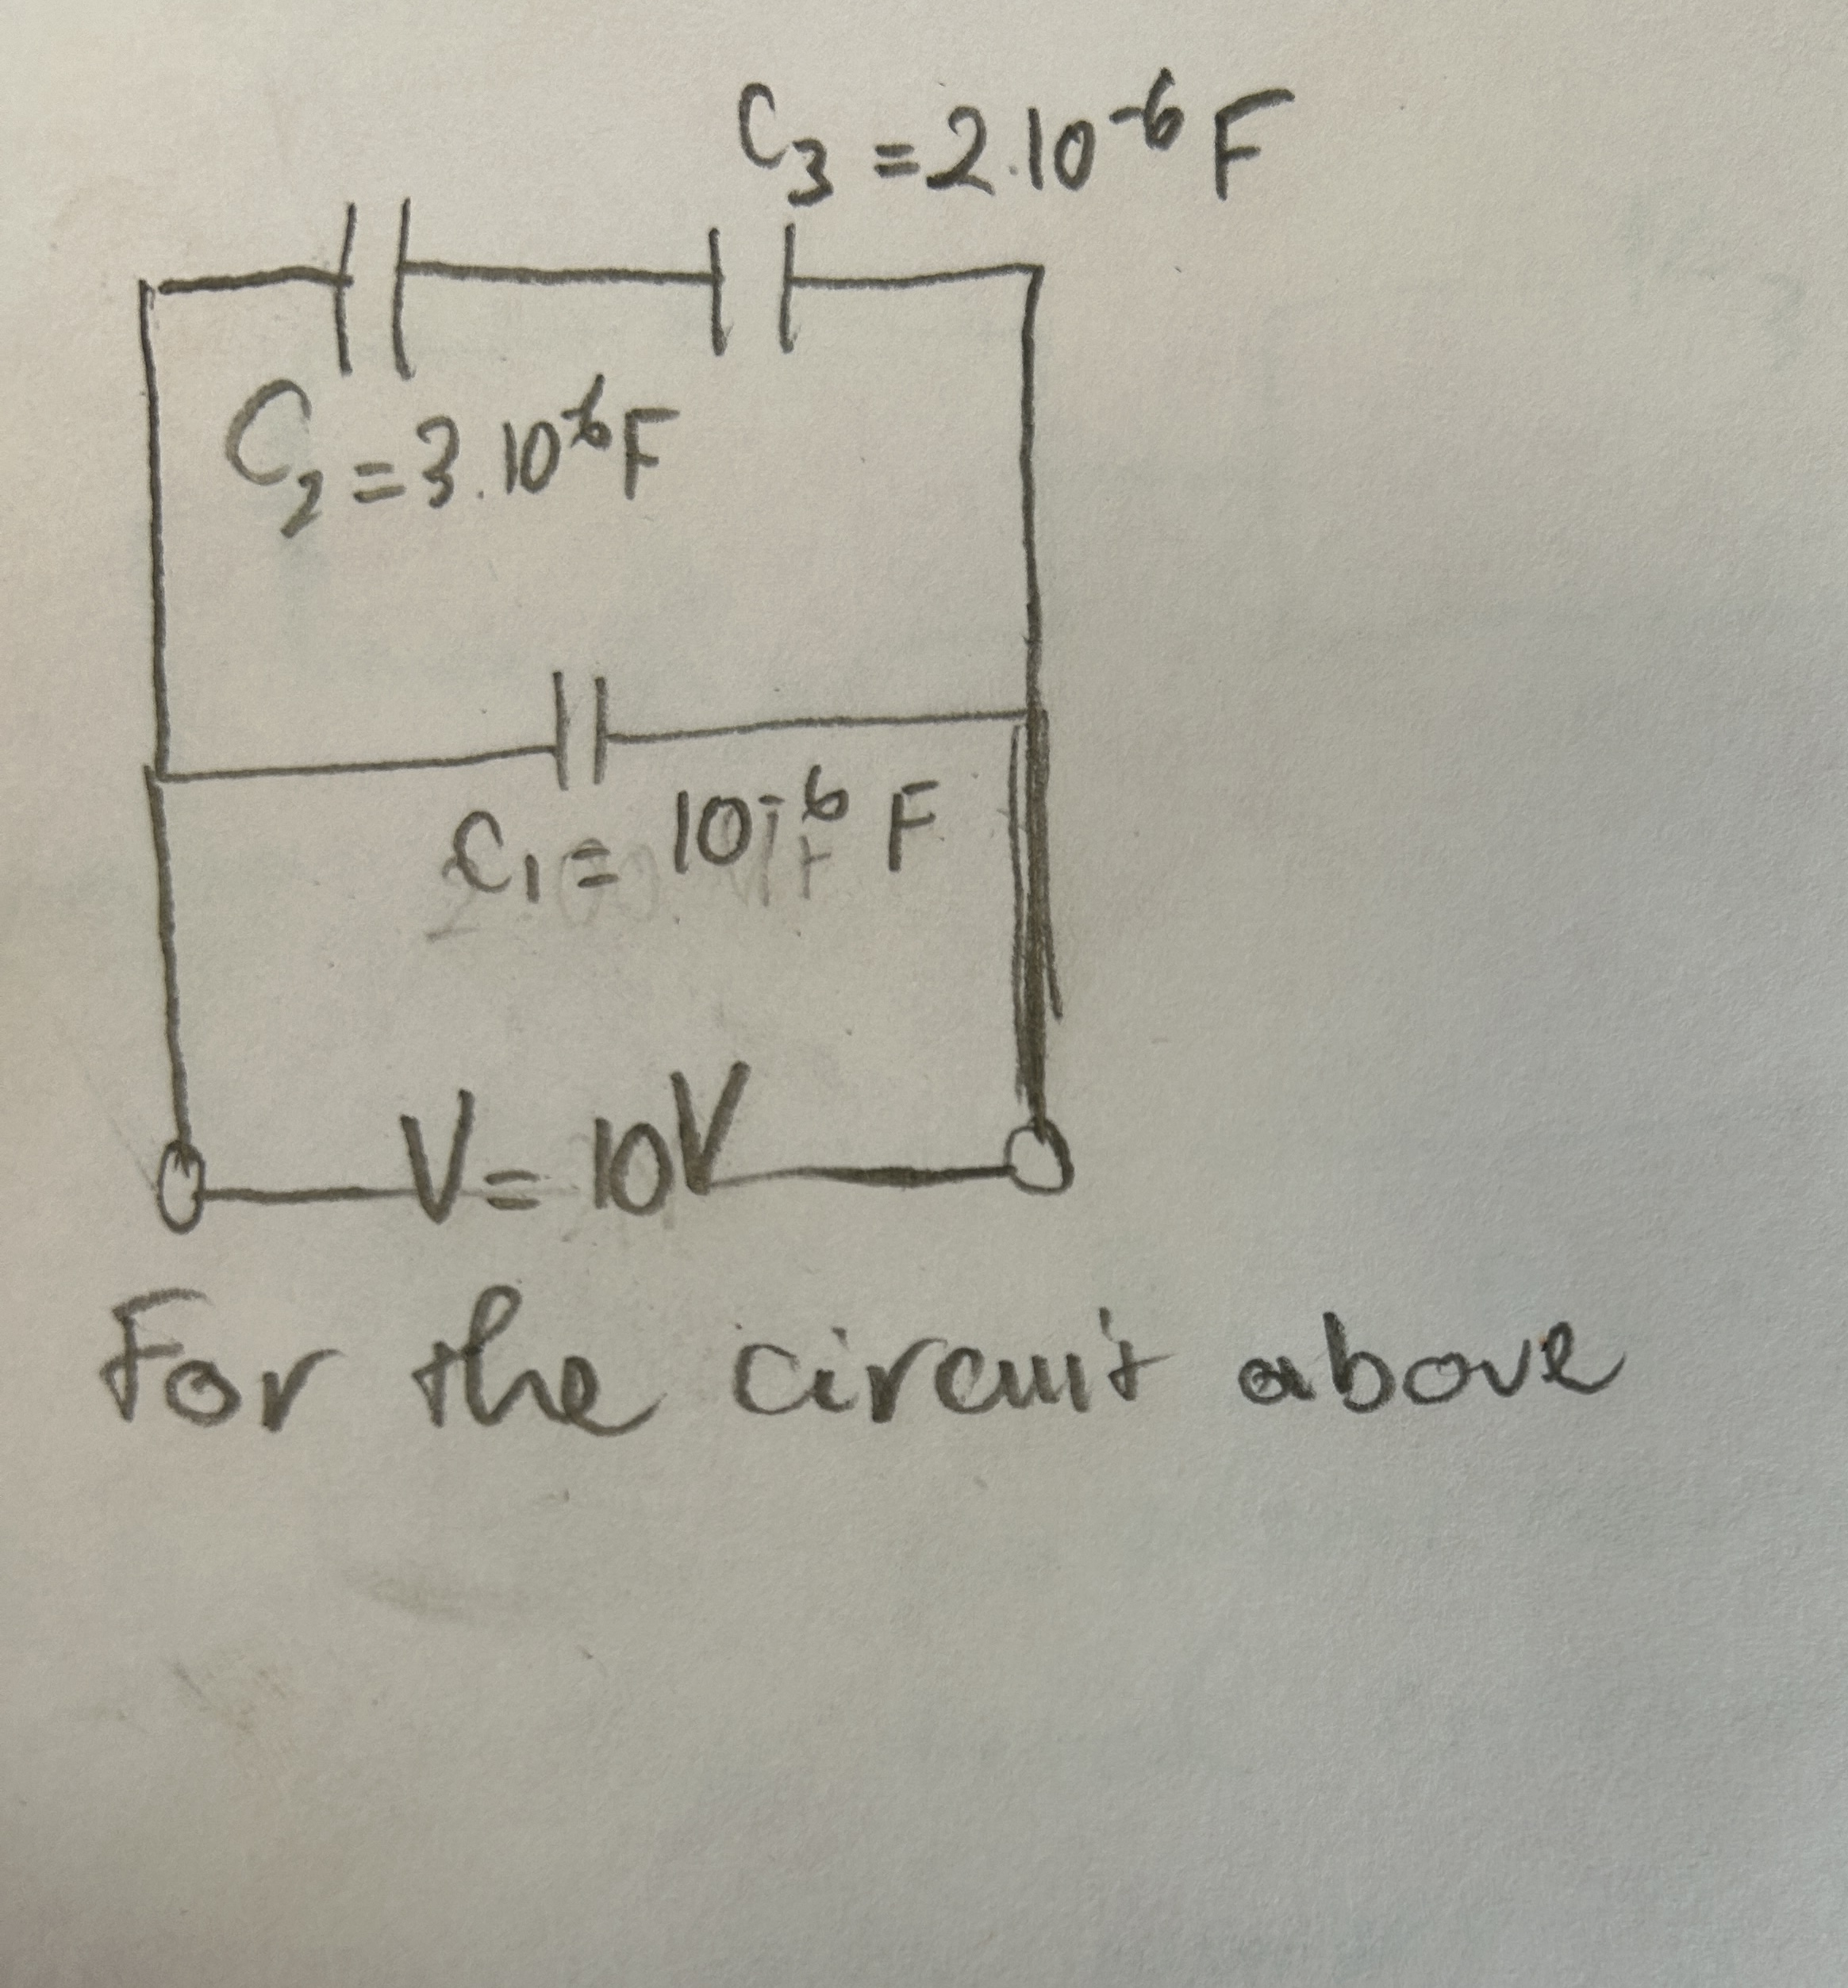 C₃ = 2.10⁻⁶ F
C₂ = 3.10⁻⁶ F
C₁ = 10⁻⁶ F
V = 10V
For the circuit above